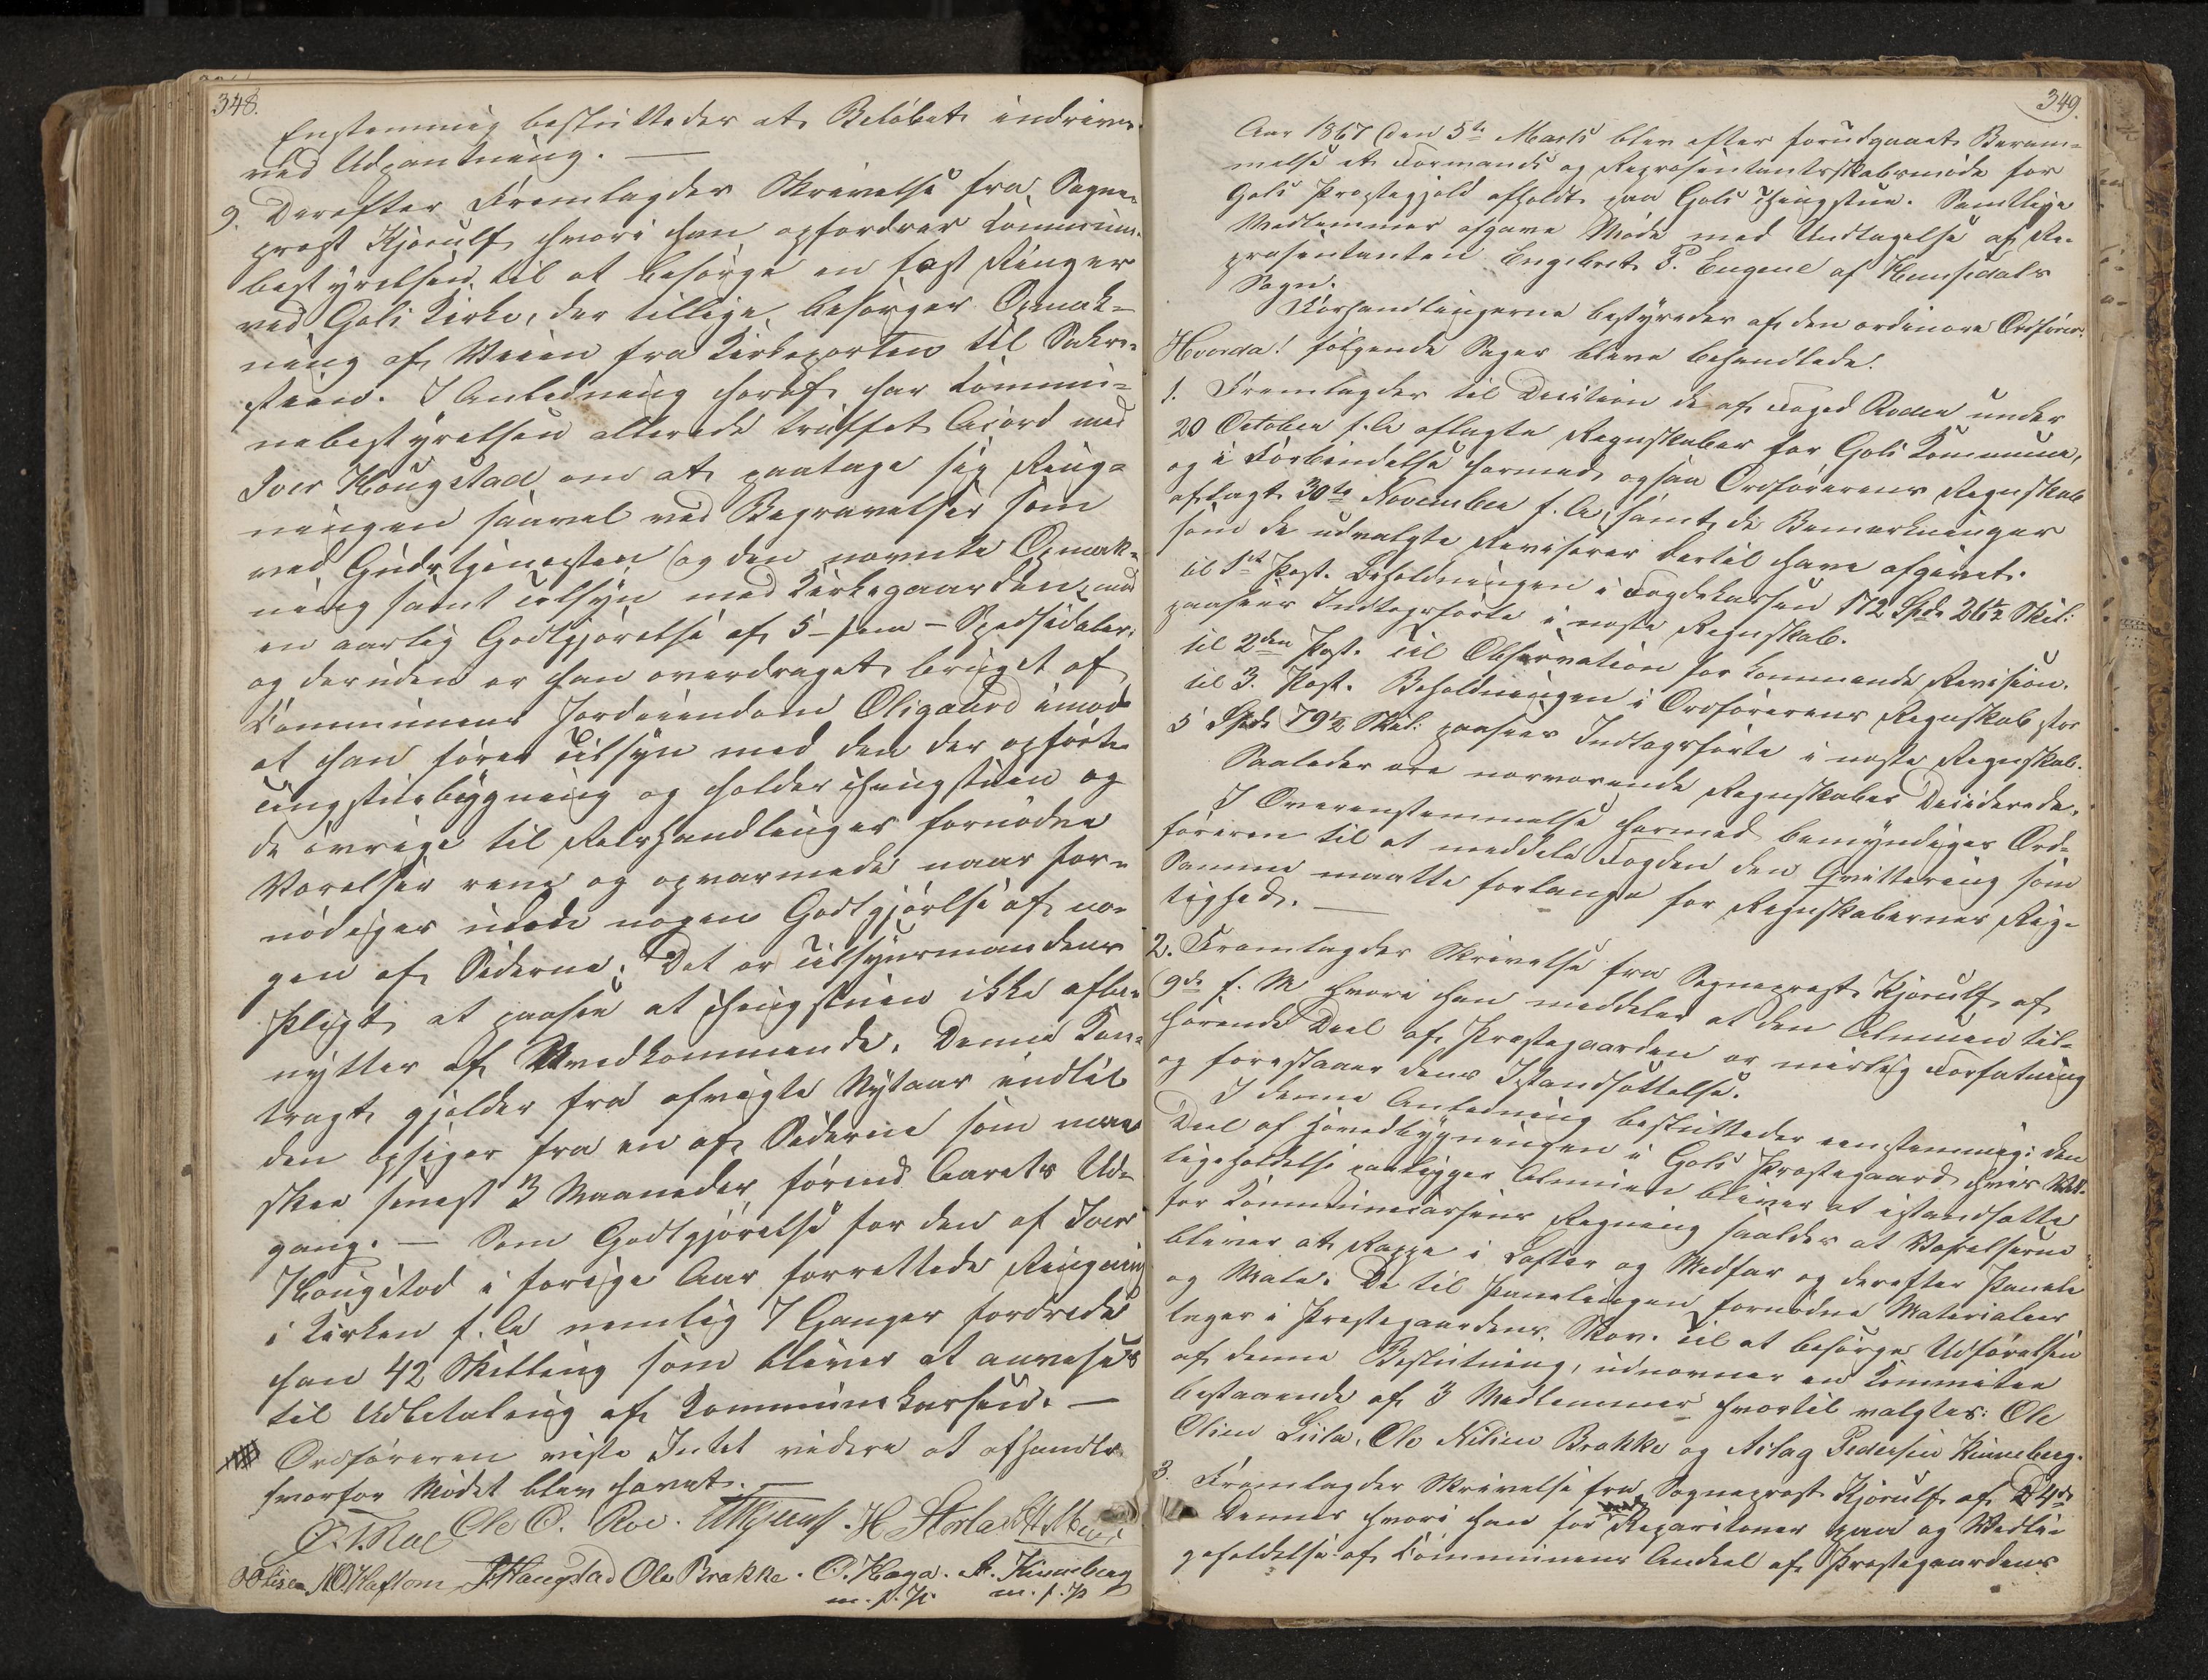 348.
Enstemmig besluttedes at Beløbet indrives
ved Udpantning. —
9. Derefter Fremlagdes Skrivelse fra Sogne-
præst Kjerulf hvori han opfordrer Commune-
bestyrelsen til at besørge en fast Ringer
ved Gols Kirke, der tillige besørger Opmok-
ning af Veien fra Kirkeporten til Sakri-
stiet. I Anledning heraf har Commu-
nebestyrelsen allerede truffet Acord med
Iver Hougstad om at paatage sig Ring-
ningen saavel ved Begravelser som
ved Gudstjenesten og den nævnte Opmok-
ning samt Tilsyn med Kirkegaarden, mod
en aarlig Godtgjørelse af 5 – fem – Spesidaler;
og desuden er han overdraget bruget af
Communens Jordeiendom Oligaard imod
at han fører Tilsyn med den der opførte
Tingstuebygning og holder Thingstuen og
de øvrige til Retshandlinger fornødne
Værelser rene og opvarmede naar for-
nødiges uden nogen Godtgjørlse af no-
gen af Siderne. Det er Tilsynsmandens
Pligt at paasee at Thingstuen ikke afbe-
nyttes af Uvedkommende. Denne Con-
tragt gjelder fra afvigte Nytaar indtil
den opsiges fra en af Siderne som maa
skee senest 3 Maaneder førend Aarets Ud-
gang. — Som Godtgjørelse for den af Iver
Hougstad i forrige Aar forrettede Ringning
i Kirken f. A. nemlig 7 Ganger fordrede
han 42 Skilling som bliver at anvises
til Udbetaling af Kommunekassen. —
Ordføreren viste Intet videre at afhandle
hvorfor Mødet blev hævet. —
Ole O. Roe.
Ole Brakke. O. Haga. A. Kinneberg
m. f. P. m. f. P
349.
Aar 1867 den 5te Marts blev efter forudgaaet Beram-
melse et Formands og Repræsentantskabsmøde for
Gols Præstegjeld afholdt paa Gols Thingstue. Samtlige
Medlemmer afgave Møde med Undtagelse af Re-
præsentanten Engebret P. Eugene af Hemsedals
Sogn.
Forhandlingerne bestyredes af den ordinære Ordfører.
Hvorda! følgende Sager bleve behandlede:
1. Fremlagdes til Decision de af Foged Roden under
20 October f. A. aflagte Regnskaber for Gols Kommune,
og i Forbindelse hermed ogsaa Ordførerens Regnskab
aflagt 30te November f. A., samt de Bemærkninger
som de udvalgte Revisorer dertil have afgivet.
til 1ste Post. Beholdningen i Fogdekassen 172 Spd. 26½ Skil:
paasees Indtægsførte i næste Regnskab.
til 2den Post. Til Observation for kommende Revision.
til 3. Post. Beholdningen i Ordførerens Regnskab stor
5 Spd. 79½ Skil: paasees Indtægsførte i næste Regnskab.
Saaledes ere nærværende Regnskaber Deciderede.
I Overenstemmelse hermed bemyndiges Ord-
føreren til at meddele Fogden den Qvittering som
Samme maatte forlange for Regnskabernes Rig-
tighed. —
2. Fremlagdes Skrivelse fra Sognepræst Kjerulf af
9de f. M hvori han meddeler at den Almuen til-
hørende Deel af Præstegaarden er mislig Forfatning
og foreslaaer dens Istandsættelse.
I denne Anledning besluttedes eenstemmig: den
Deel af Hovedbygningen i Gols Præstegaard hvis Ved-
ligeholdelse paaligger Almuen bliver at istandsætte
for Kommunecassens Regning saaledes at Værelserne
bliver at Rappe i Lofter og Medfar og derefter Panele
og Male. De til Panelingen fornødne Materialer
tages i Præstegaardens Skov. Til at besørge Udførelsen
af denne Beslutning, udnævnes en Kommitee
bestaaende af 3 Medlemmer hvortil valgtes: Ole
Olsen Liila, Ole Nilsen Brakke og Aslag Pedersen Kinneberg.
3. Fremlagdes Skrivelse fra Sognepræst Kjerulf af D 4de
Dennes hvori han for Reparationer paa og Vedli-
geholdelse af Communens Andeel af Præstegaardens